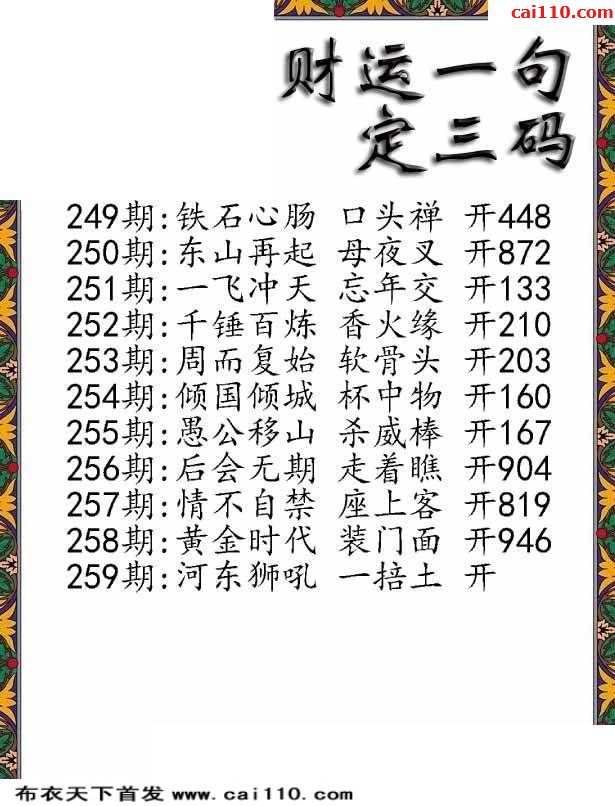 cai110.com
财运一句
定三码
249期:铁石心肠 口头禅 开448
250期:东山再起 母夜叉 开872
251期:一飞冲天 忘年交 开133
252期:千锤百炼 香火缘 开210
253期:周而复始 软骨头 开203
254期:倾国倾城 杯中物 开160
255期:愚公移山 杀威棒 开167
256期:后会无期 走着瞧 开904
257期:情不自禁 座上客 开819
258期:黄金时代 装门面 开946
259期:河东狮吼 一掊土 开
布衣天下首发 www.cai110.com